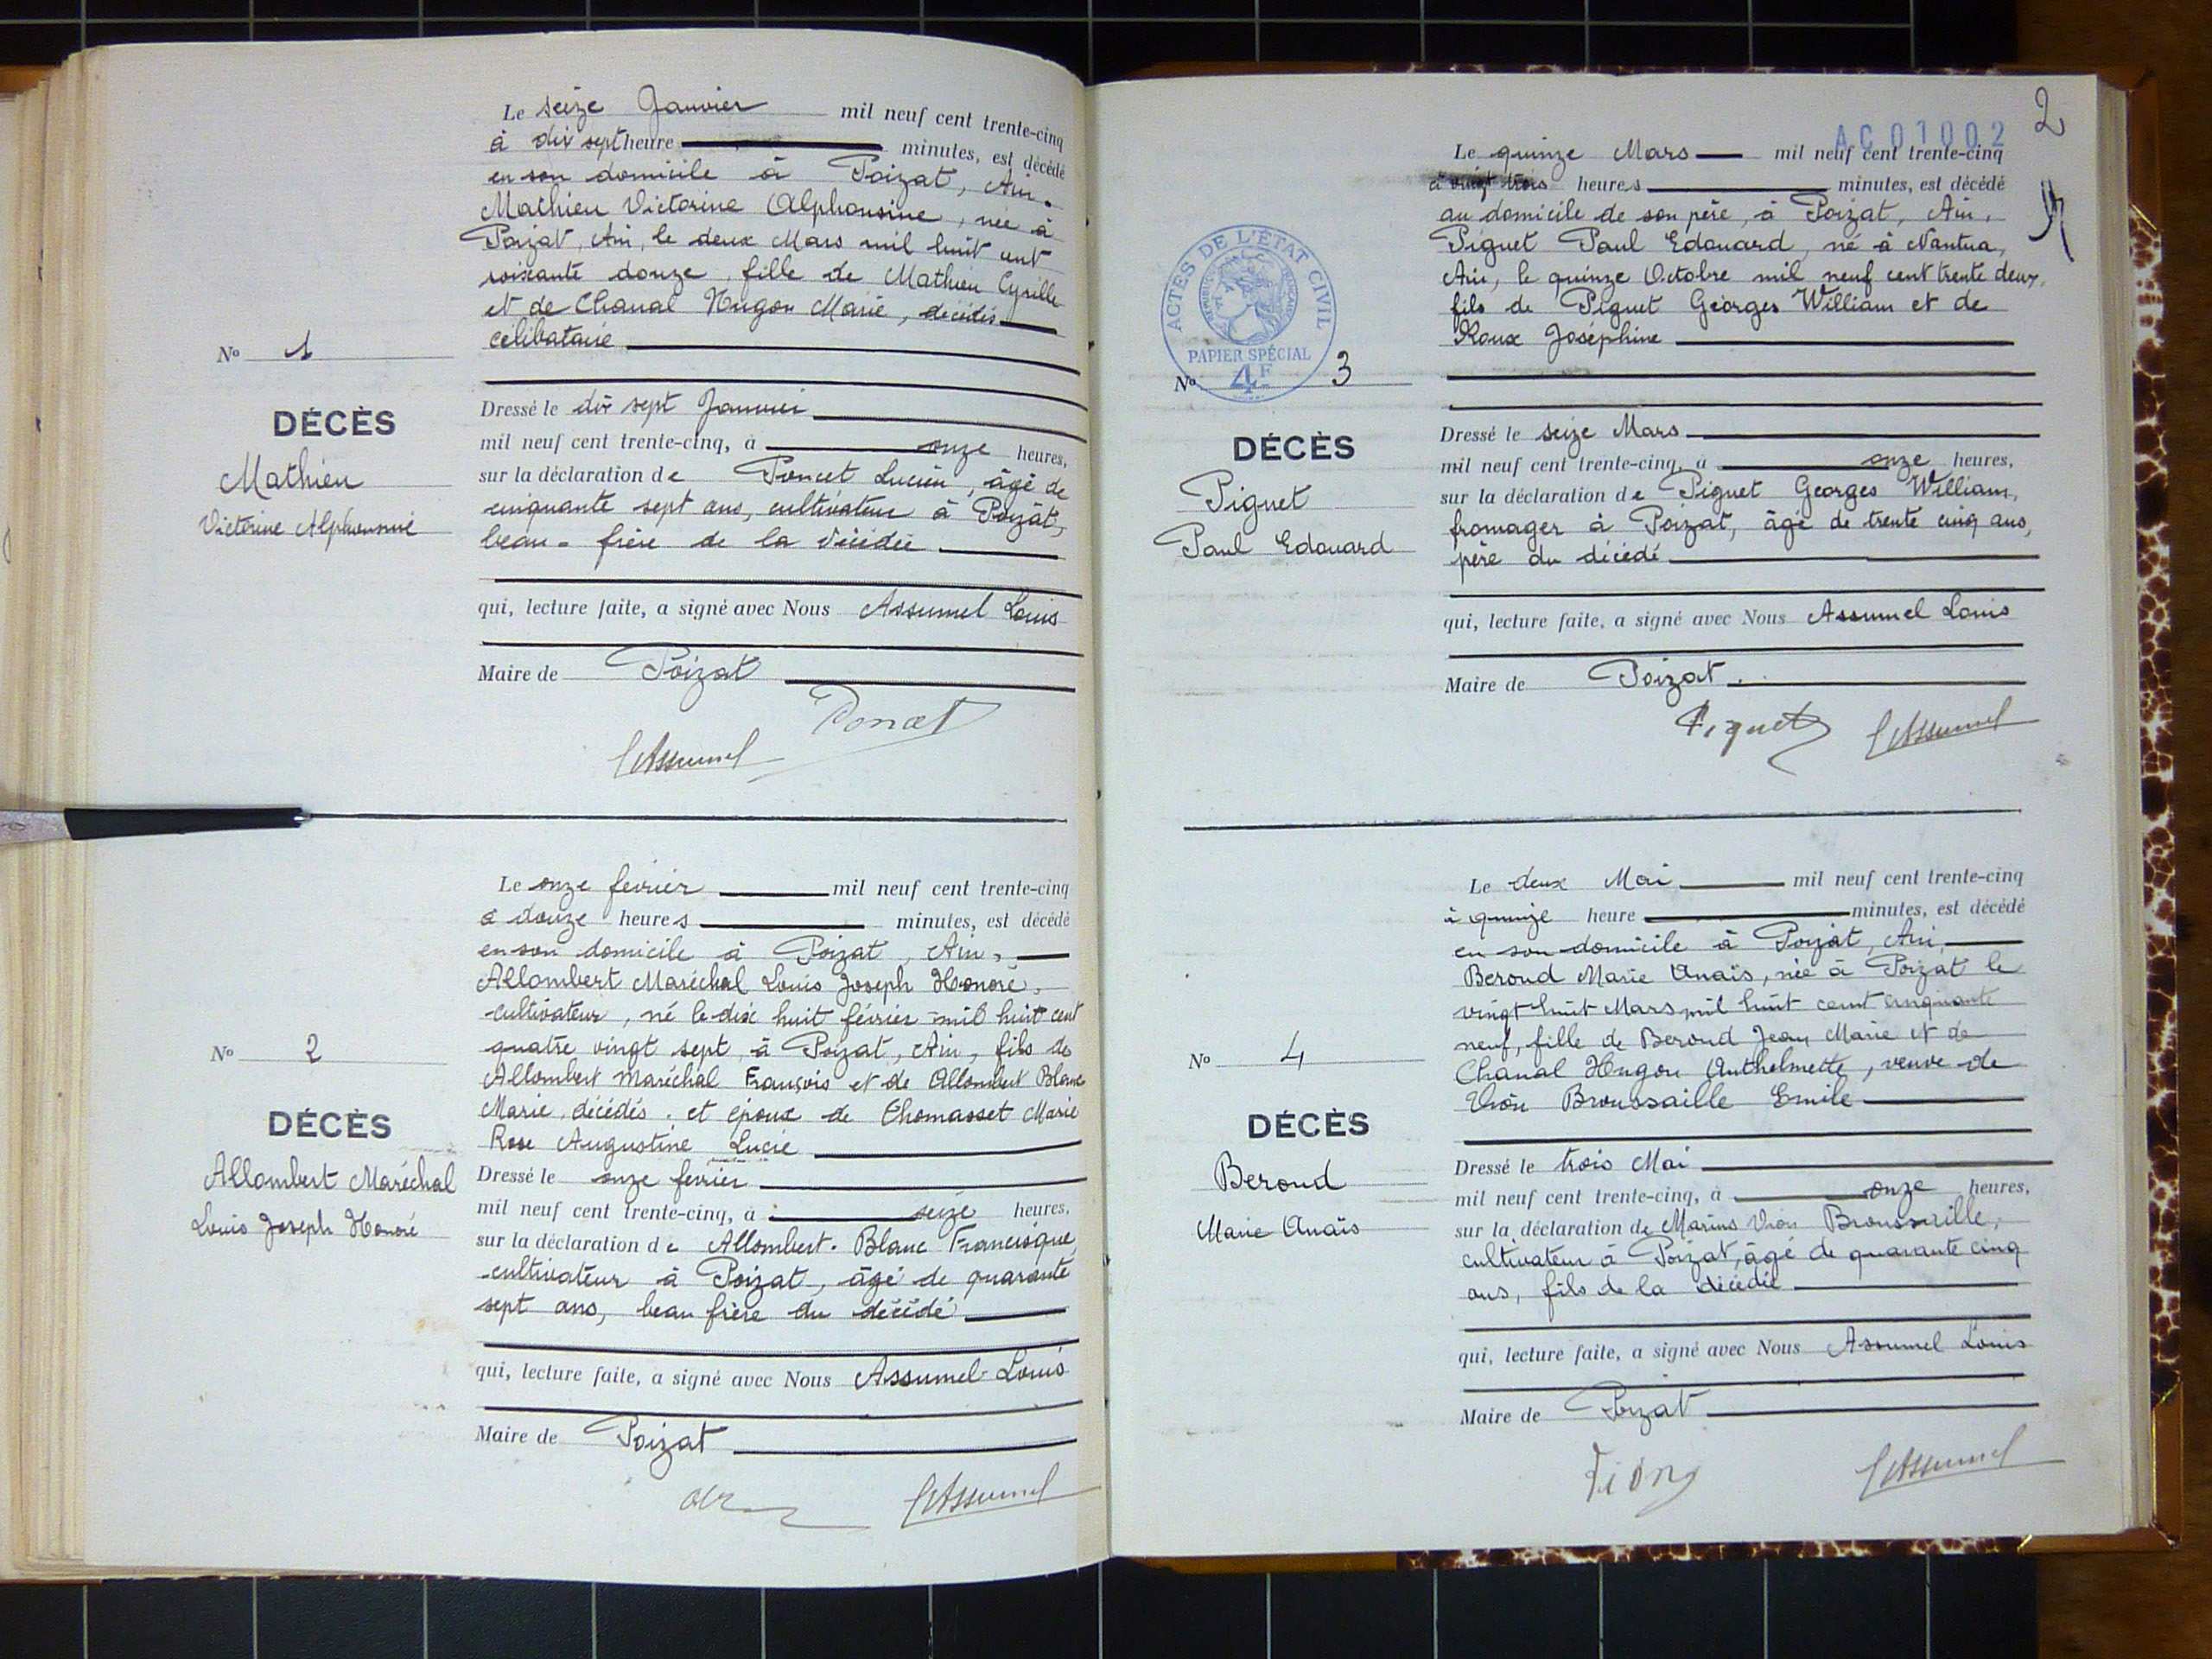 Le seize Janvier mil neuf cent trente-cinq
à dix sept heure minutes, est décédé
en son domicile à Poizat, Ain.
Mathieu Victorine Alphonsine, née à
Poizat, Ain, le deux Mars mil huit cent
soixante douze, fille de Mathieu Cyrille
et de Chanal Hugon Marie, décédés
célibataire
N° 1
DÉCÈS
Mathieu
Victorine Alphonsine
Dressé le dix sept Janvier
mil neuf cent trente-cinq, à onze heures,
sur la déclaration de Poncet Lucien, âgé de
cinquante sept ans, cultivateur à Poizat,
beau-frère de la décédée
qui, lecture faite, a signé avec Nous Assumel Louis
Maire de Poizat
Poncet
LAssumel
Le onze février mil neuf cent trente-cinq
à douze heures minutes, est décédé
en son domicile à Poizat, Ain,
Allombert Maréchal Louis Joseph Honoré,
cultivateur, né le dix huit février mil huit cent
quatre vingt sept, à Poizat, Ain, fils de
Allombert Maréchal François et de Allombert Blanc
Marie, décédés. et époux de Thomasset Marie
Rose Augustine Lucie
N° 2
DÉCÈS
Allombert Maréchal
Louis Joseph Honoré
Dressé le onze février
mil neuf cent trente-cinq, à seize heures,
sur la déclaration de Allombert-Blanc Francisque
cultivateur à Poizat, âgé de quarante
sept ans, beau frère du décédé
qui, lecture faite, a signé avec Nous Assumel Louis
Maire de Poizat
LAssumel
2
AC 01002
Le quinze Mars mil neuf cent trente-cinq
à vingt trois heures minutes, est décédé
au domicile de son père, à Poizat, Ain,
Piguet Paul Edouard, né à Nantua,
Ain, le quinze Octobre mil neuf cent trente deux,
fils de Piguet Georges William et de
Roux Joséphine
ACTES DE L'ÉTAT CIVIL
RÉPUBLIQUE FRANÇAISE
PAPIER SPÉCIAL
4F
N° 3
DÉCÈS
Piguet
Paul Edouard
Dressé le seize Mars
mil neuf cent trente-cinq, à onze heures,
sur la déclaration de Piguet Georges William,
fromager à Poizat, âgé de trente cinq ans,
père du décédé
qui, lecture faite, a signé avec Nous Assumel Louis
Maire de Poizat.
Piguet LAssumel
Le deux Mai mil neuf cent trente-cinq
à quinze heure minutes, est décédé
en son domicile à Poizat, Ain,
Beroud Marie Anaïs, née à Poizat le
vingt huit Mars mil huit cent cinquante
neuf, fille de Beroud Jean Marie et de
Chanal Hugon Anthelmette, veuve de
Vion Broussaille Emile
N° 4
DÉCÈS
Beroud
Marie Anaïs
Dressé le trois Mai
mil neuf cent trente-cinq, à onze heures,
sur la déclaration de Marius Vion Broussaille,
cultivateur à Poizat, âgé de quarante cinq
ans, fils de la décédée
qui, lecture faite, a signé avec Nous Assumel Louis
Maire de Poizat
Vion LAssumel